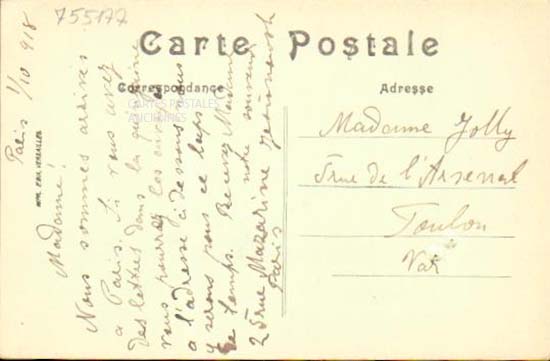 755177
Carte Postale
Correspondance
Adresse
CARTES POSTALES
ANCIENNES
IMP. E.H.D. VERSAILLES
Paris 1/10 918
Madame!
Nous sommes arrivés
a Paris. Si vous avez
des lettres dans la quinzaine
vous pourrez les envoyer
a l'adresse ci dessous nous
y serons pour ce laps
de temps. Recevez Madame
notre souvenir
25 rue Mazarine
Paris
Madame Jolly
5 rue de l'Arsenal
Toulon
Var